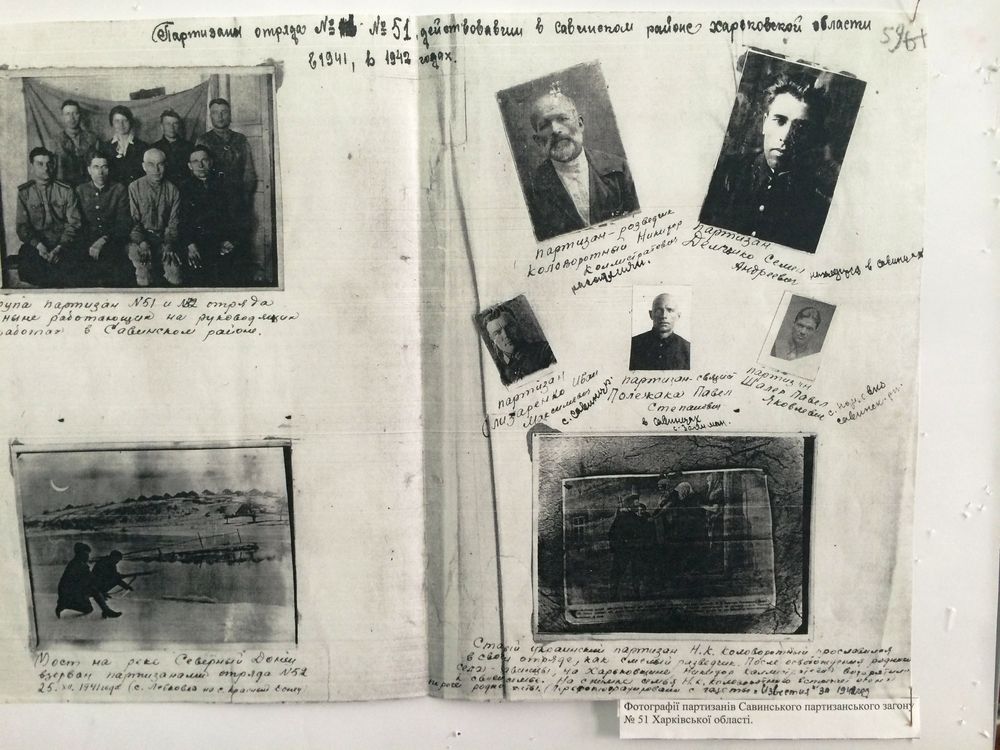 Партизаны отряда № 51, действовавши в Савинском районе Харьковской области
в 1941, в 1942 годах.
596
група партизан №51 и №52 отряда
ныне работающих на руководящих
работах в Савинском районе.
партизан-розведчик
Коловоротный Никифор
Каллистратович
партизан
Демушко Семен
Андреевич находится в савинцах
партизан
Иван
Максимович
с. савинцы
партизан-
Полежака Павел
Степанович
в савинцах
партизан
Шалер Павел
Яковлевич
савинск. р-н.
Мост на реке Северный Донец
взорван партизанами отряда №52
25. XII. 1941 года (с. Левковка на с. Красный Оскол)
Старый украинский партизан Н.К. Коловоротный прославился
в своем отряде, как смелый разведчик. После освобождения родного
села - Савинцы, на Харьковщине Никифор Каллистратович возвратился
к своей семье. На снимке семья Н.К. Коловоротного
(Перефотографировано с газеты „Известия" за 194
Фотографії партизанів Савинського партизанського загону
№ 51 Харківської області.